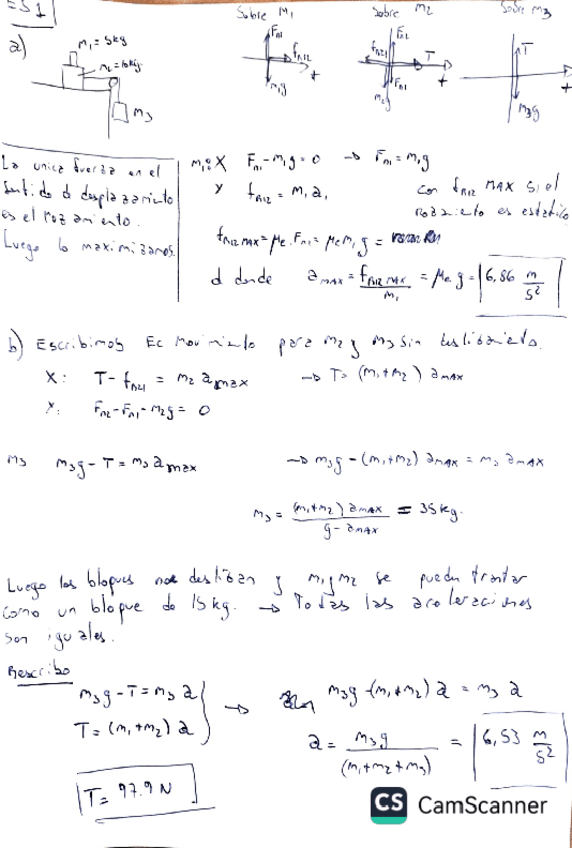 ES1
a)
m₁=5kg
m₂=10kg
m₃
Sobre m₁
Fn1
fR12
m₁g
+
Sobre m₂
Fn2
fR21
T
Fn1
m₂g
+
Sobre m₃
T
m₃g
+
La unica fuerza en el
sentido d desplazamiento
es el rozamiento.
Luego lo maximizamos.
m₁: X Fn1-m₁g=0 → Fn1=m₁g
Y fR12 = m₁a₁
con fR12 MAX si el
rozamiento es estatico
fR12 MAX = μe.Fn1 = μe m₁ g =
d donde amax = fR12 MAX / m₁ = μe g = 6,86 m/s²
b) Escribimos Ec Movimiento para m₂ y m₃ sin deslizamiento.
X: T - fR21 = m₂ amax → T = (m₁+m₂) aMAX
Y: Fn2-Fn1-m₂g = 0
m₃ m₃g - T = m₃ amax → m₃g - (m₁+m₂) aMAX = m₃ aMAX
m₃ = (m₁+m₂) aMAX / g-aMAX = 35kg.
Luego los bloques no deslizan y m₁ y m₂ se pueden tratar
como un bloque de 15kg. → Todas las aceleraciones
son iguales.
Rescribo
m₃g - T = m₃ a
T = (m₁+m₂) a
→ m₃g - (m₁+m₂) a = m₃ a
a = m₃g / (m₁+m₂+m₃) = 6,53 m/s²
T = 97.9 N
CS CamScanner